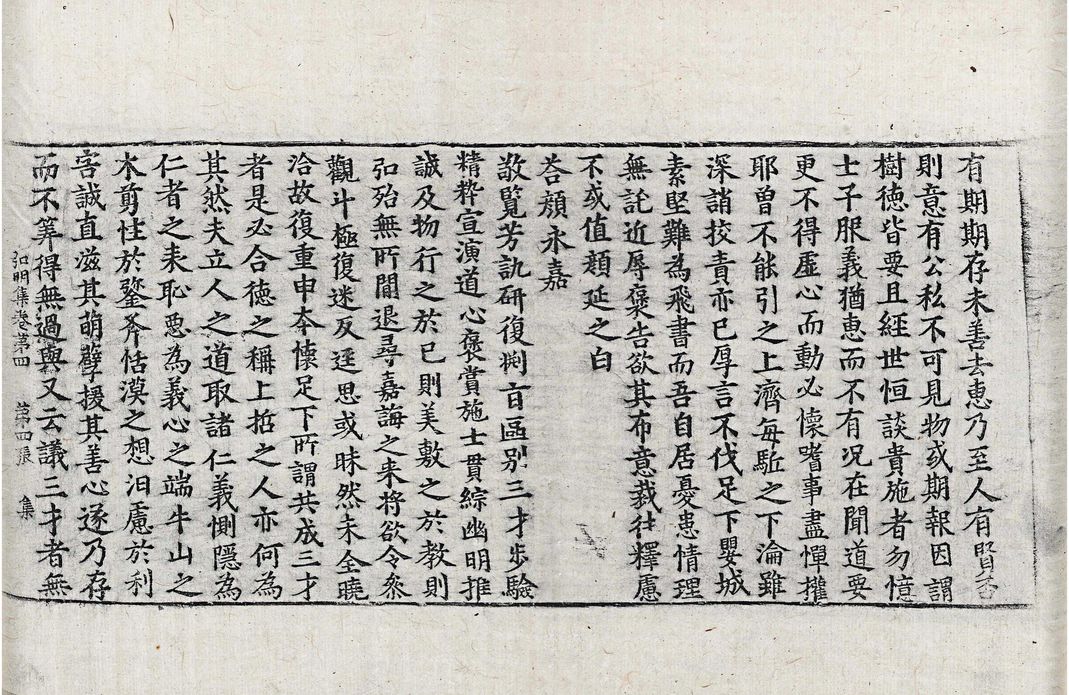 有期期存未善去惠乃至人有賢否
則意有公私不可見物或期報因謂
樹德皆要且經世恒談貴施者勿憶
士子服義猶惠而不有况在聞道要
更不得虛心而動必懷嗜事盡憚權
耶曽不能引之上濟每駈之下淪雖
深誚挍責亦已厚言不伐足下嬰城
素堅難為飛書而吾自居憂患情理
無託近辱褒告欲其布意裁往釋慮
不或值顔延之白
荅顔永嘉
敬覽芳訊研復渊旨區别三才步驗
精粹宣演道心褒賞施士貫綜幽明推
誠及物行之於已則美敷之於教則
弘殆無所間退尋嘉誨之来將欲令叅
觀斗極復迷反逕思或昧然未全曉
洽故復重申本懷足下所謂共成三才
者是必合德之稱上哲之人亦何為
其然夫立人之道取諸仁義惻隱為
仁者之表恥惡為義心之端牛山之
木剪性於鐅斧恬漠之想汩慮於利
害誠直滋其萌孽援其善心遂乃存
而不筭得無過與又云議三才者無
弘明集卷第四 第四張 集